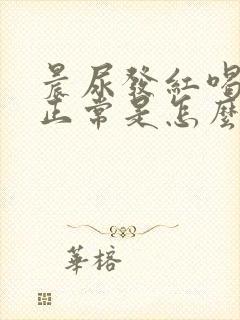 晨尿發紅喝
正常是怎麼
華榕